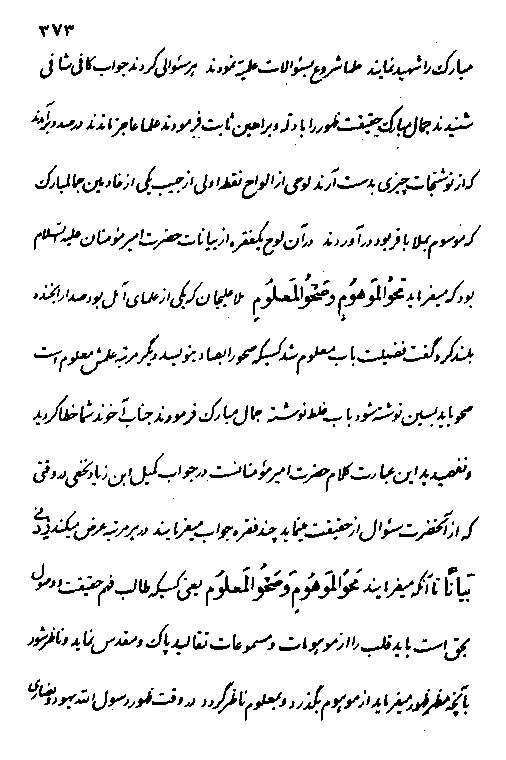 ۳۷۳
مبارک را شهید نمایند علما شروع بسئوالات علمیّه نمودند هر سئوالی کردند جواب کافی شافی
شنیدند جمال مبارک حقیقت ظهور را بادلّه و براهین ثابت فرمودند علما عاجز ماندند درصدد برآمدند
که از نوشتجات چیزی بدست آرند لوحی از الواح نقطه اولی از جیب یکی از خادمین جمالمبارک
که موسوم بملا باقر بود درآوردند در آن لوح یکفقره از بیانات حضرت امیر مؤمنان علیه السّلام
بود که میفرماید مَحوُ المَوهُومِ وَ صَحوُ المَعلُومِ ملا علیجان که یکی از علمای آمل بود صدا را بخنده
بلند کرد و گفت فضیلت باب معلوم شد کسیکه صحو را بصاد بنویسد دیگر مرتبه علمش معلوم است
صحو باید بسین نوشته شود باب غلط نوشته جمال مبارک فرمودند جناب آخوند شما خطا کردید
و نفهمیدید این عبارت کلام حضرت امیر مؤمنانست در جواب کمیل ابن زیاد نخعی در وقتی
که از آنحضرت سئوال از حقیقت مینماید چند فقره جواب میفرمایند در هر مرتبه عرض میکند زِدنی
بَیاناً تا آنکه میفرمایند مَحوُ المَوهُومِ وَ صَحوُ المَعلُوم یعنی کسیکه طالب فهم حقیقت و وصول
بحق است باید قلب را از موهومات و مسموعات تقالید پاک و مقدس نماید و ناظر شود
بآنچه مظهر ظهور میفرماید از موهوم بگذرد و بمعلوم ناظر گردد در وقت ظهور رسول الله یهود و نصاری